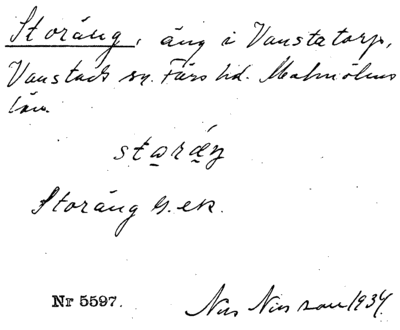 Storäng, äng i Vanstatorp,
Vanstads sn. Färs hd. Malmöhus
län.
Storäng g. ek.
Nr 5597.
Nils Nilsson 1934.